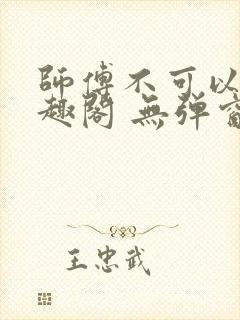 師傅不可以
趣閣 無彈窗
王忠武